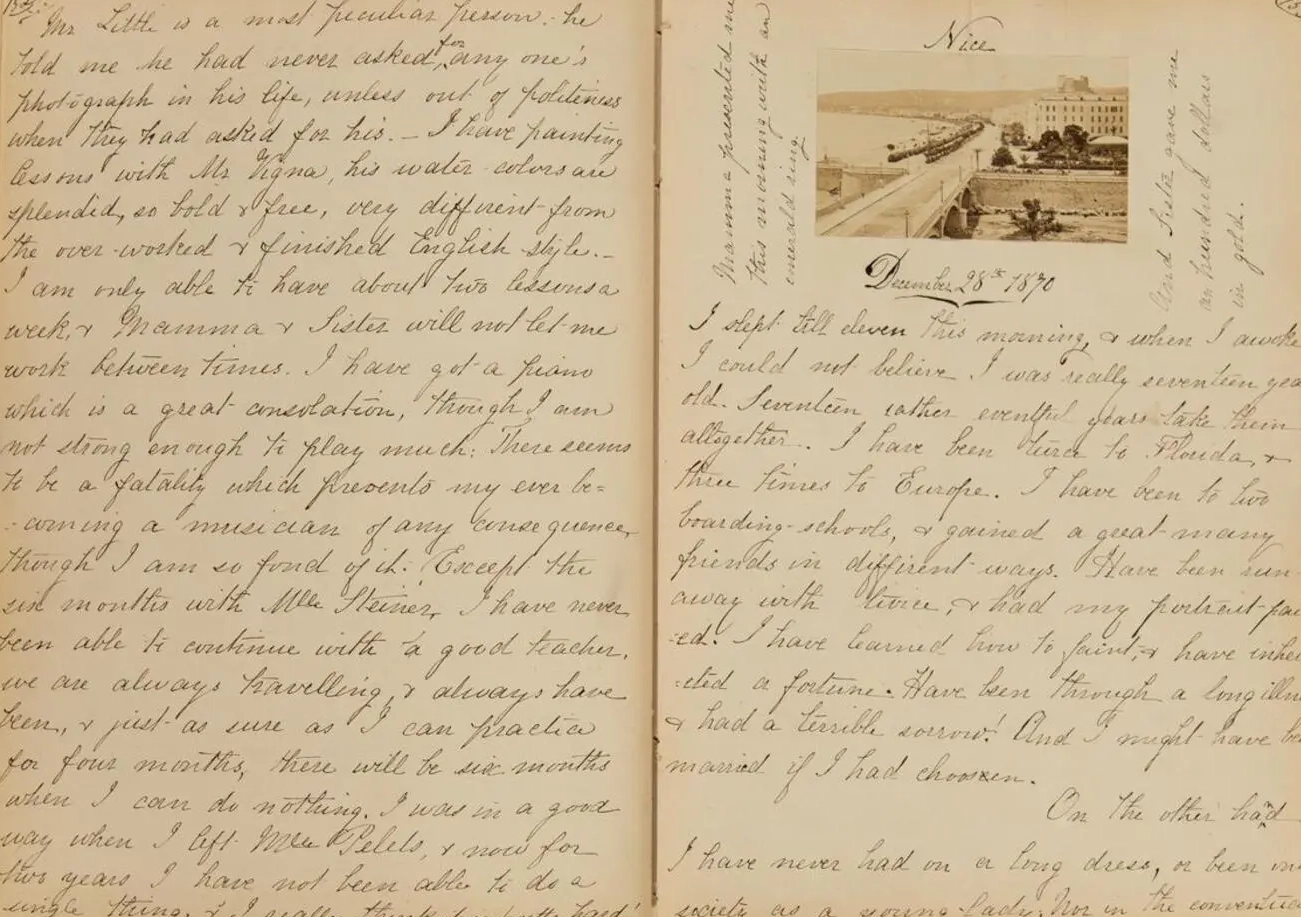 Mr. Little is a most peculiar person: he
told me he had never asked for any one's
photograph in his life, unless out of politeness
when they had asked for his. — I have painting
lessons with Mr Vigna, his water-colors are
splendid, so bold & free, very different from
the over-worked & finished English style. —
I am only able to have about two lessons a
week, & Mamma & Sister will not let me
work between times. I have got a piano
which is a great consolation, though I am
not strong enough to play much: There seems
to be a fatality which prevents my ever be=
=coming a musician of any consequence,
though I am so fond of it: Except the
six months with Mlle Steiner, I have never
been able to continue with a good teacher,
we are always travelling, & always have
been, & just as sure as I can practice
for four months, there will be six months
when I can do nothing. I was in a good
way when I left Mlle Pelets, & now for
two years I have not been able to do a
single thing, & I really think
Mamma presented me
this morning with an
emerald ring.
Nice
And Sister gave me
an hundred dollars
in gold.
December 28th 1870
I slept till eleven this morning, & when I awoke
I could not believe I was really seventeen yea
old. Seventeen rather eventful years take them
altogether. I have been twice to Florida, &
three times to Europe. I have been to two
boarding-schools, & gained a great many
friends in different ways. Have been run-
away with twice, & had my portrait pai
=ed. I have learned how to faint, & have inhe
=ited a fortune. Have been through a long illn
& had a terrible sorrow! And I might have be
married if I had choosen.
On the other hand
I have never had on a long dress, or been in
society as a young lady; Nor in the convention